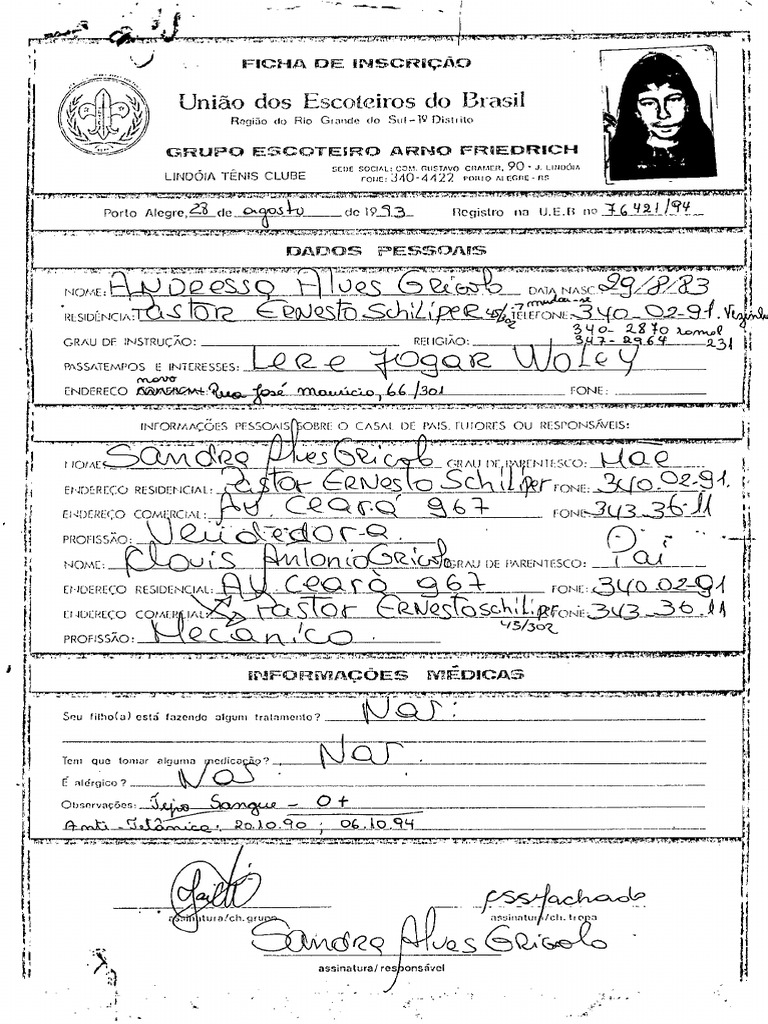 FICHA DE INSCRIÇÃO
União dos Escoteiros do Brasil
Região do Rio Grande do Sul - 1º Distrito
GRUPO ESCOTEIRO ARNO FRIEDRICH
LINDÓIA TÊNIS CLUBE
SEDE SOCIAL: COM. GUSTAVO CRAMER, 90 - J. LINDÓIA
FONE: 340-4422 PORTO ALEGRE - RS
Porto Alegre, 28 de agosto de 1993 Registro na U.E.B nº 76421/94
DADOS PESSOAIS
NOME: Andressa Alves Grigolo DATA NASC. 29/8/83
RESIDÊNCIA: Pastor Ernesto Schiliper 45/302 TELEFONE: 340-02-91.
mudou-se
340-2870 ramal 231
GRAU DE INSTRUÇÃO: RELIGIÃO: 347-2964
PASSATEMPOS E INTERESSES: Ler e Jogar Woley
ENDEREÇO novo Rua José Maurício, 66/301 FONE:
INFORMAÇÕES PESSOAIS SOBRE O CASAL DE PAIS, TUTORES OU RESPONSÁVEIS:
NOME: Sandra Alves Grigolo GRAU DE PARENTESCO: Mãe
ENDEREÇO RESIDENCIAL: Pastor Ernesto Schiliper FONE: 340.02-91.
ENDEREÇO COMERCIAL: AV. Ceará 967 FONE: 343.36-11
PROFISSÃO: Vendedora.
NOME: Clovis Antonio Grigolo GRAU DE PARENTESCO: Pai
ENDEREÇO RESIDENCIAL: AV Ceará 967 FONE: 340-02-91
ENDEREÇO COMERCIAL: Pastor Ernesto Schiliper FONE: 343_36.11
45/302
PROFISSÃO: Mecanico.
INFORMAÇÕES MÉDICAS
Seu filho(a) está fazendo algum tratamento? Nao.
Tem que tomar alguma medicação? Nao.
É alérgico? Nao
Observações: Tipo Sangue - O+
Anti-Tetânica: 20.10.90 ; 06.10.94
assinatura/ch. grupo
assinatura/ch. tropa
Sandra Alves Grigolo
assinatura/responsável